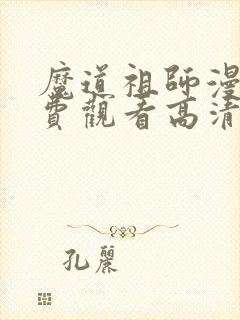 魔道祖師漫
費觀看高清
孔麗